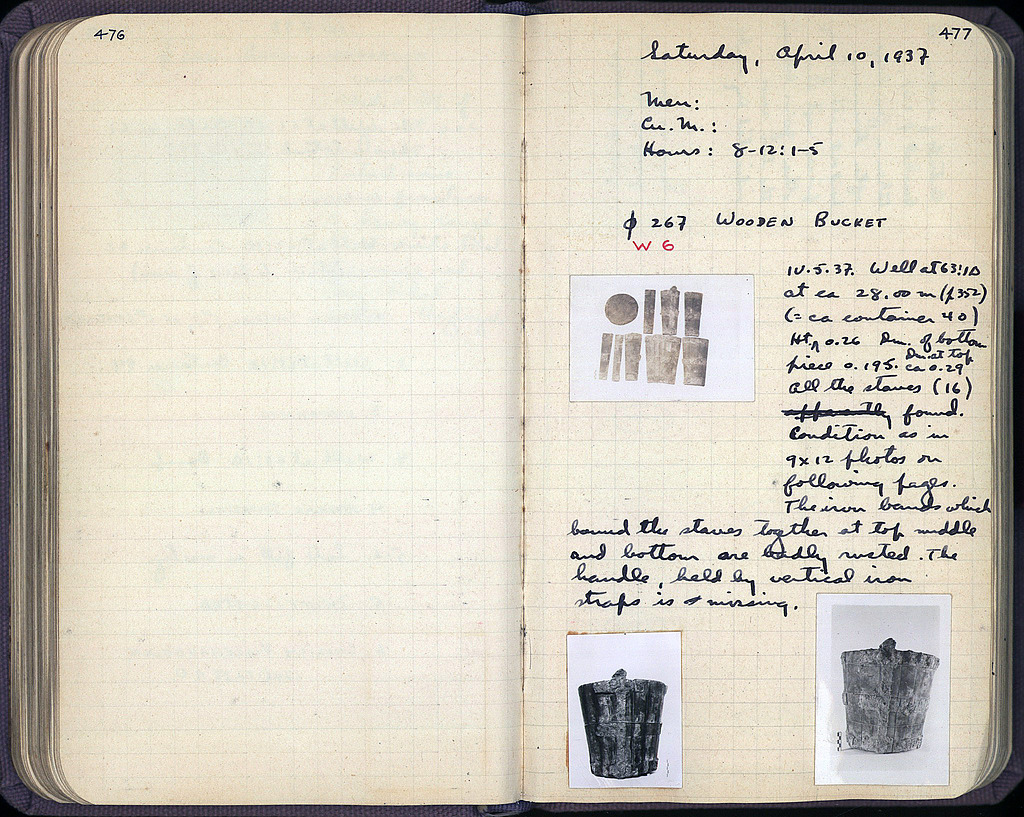 476
477
Saturday, April 10, 1937
Men:
Cu. M.:
Hours: 8-12:1-5
ϕ 267 WOODEN BUCKET
W 6
IV.5.37. Well at 63:ΙΔ
at ca 28.00 m (p 352)
(= ca container 40)
Ht. 0.26 Dm. of bottom
piece 0.195. Dm. at top ca 0.29
All the staves (16)
apparently found.
Condition as in
9x12 photos on
following pages.
The iron bands which
bound the staves together at top middle
and bottom are badly rusted. The
handle, held by vertical iron
straps is missing.